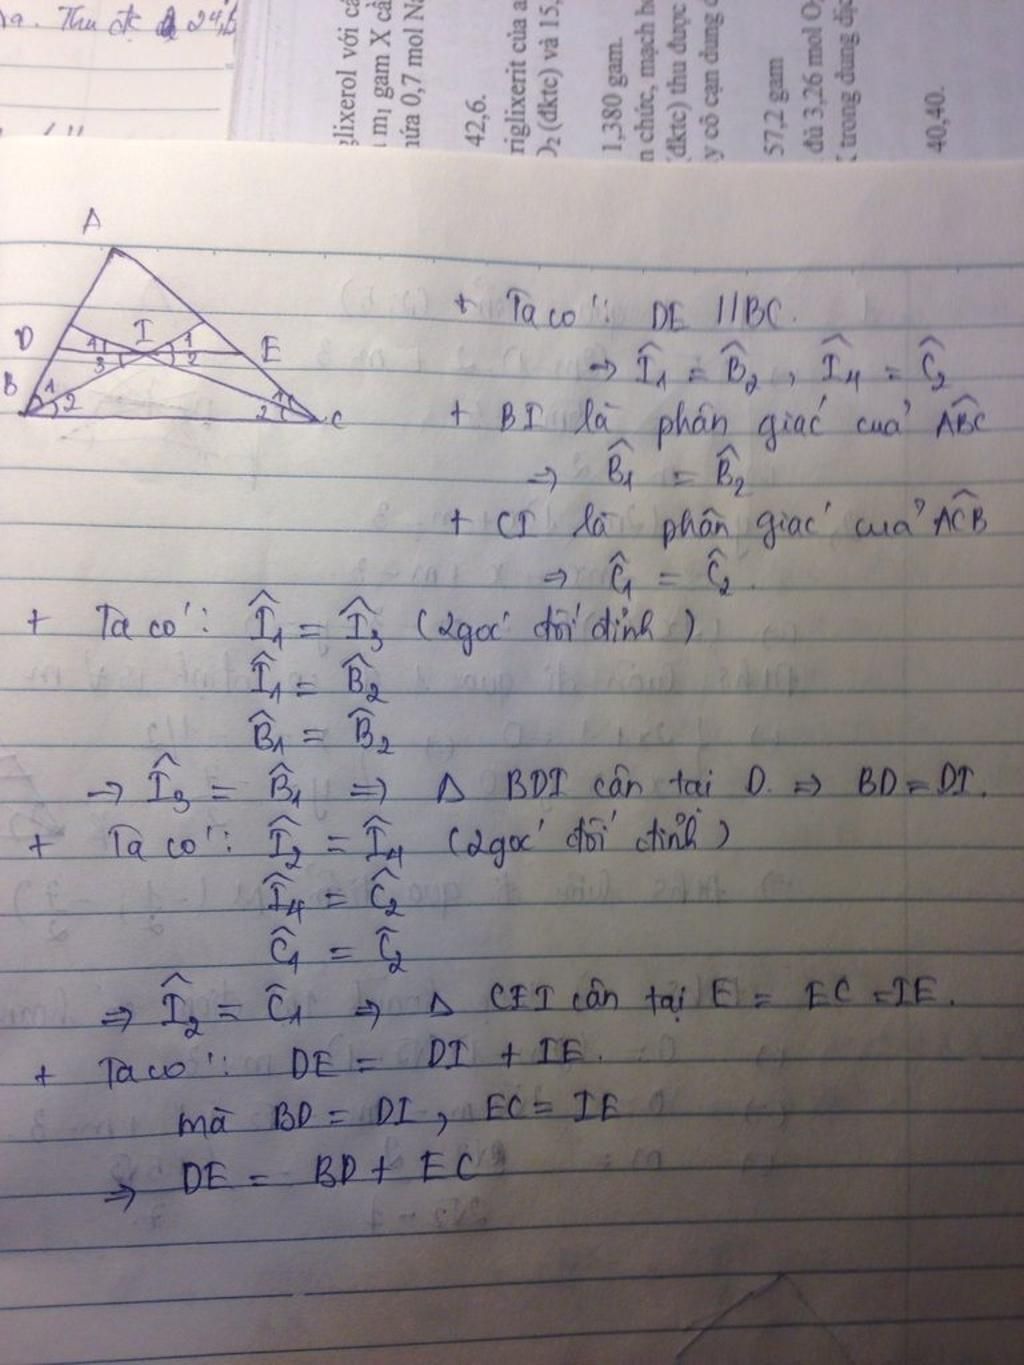 Thu đc 24,6
glixerol với
m₁ gam X
0,7 mol
42,6.
riglixerit của a
O₂ (đktc) và 15,
1,380 gam.
n chức, mạch h
(đktc) thu được
y cô cạn dung
57,2 gam
đủ 3,26 mol O
trong dung dịc
40,40.
A
D 1 3 I 1 2 E
B 1 2 1 2 C
+ Ta có: DE // BC.
→ Î₁ = B̂₂, Î₄ = Ĉ₂
+ BI là phân giác của ABC
⇒ B̂₁ = B̂₂
+ CI là phân giác của ACB
⇒ Ĉ₁ = Ĉ₂.
+ Ta có: Î₁ = Î₃ (2 góc đối đỉnh)
Î₁ = B̂₂
B̂₁ = B̂₂
→ Î₃ = B̂₁ ⇒ Δ BDI cân tại D. ⇒ BD = DI.
+ Ta có: Î₂ = Î₄ (2 góc đối đỉnh)
Î₄ = Ĉ₂
Ĉ₁ = Ĉ₂
⇒ Î₂ = Ĉ₁ ⇒ Δ CEI cân tại E = EC = IE.
+ Ta có: DE = DI + IE.
mà BD = DI, EC = IE
⇒ DE = BD + EC